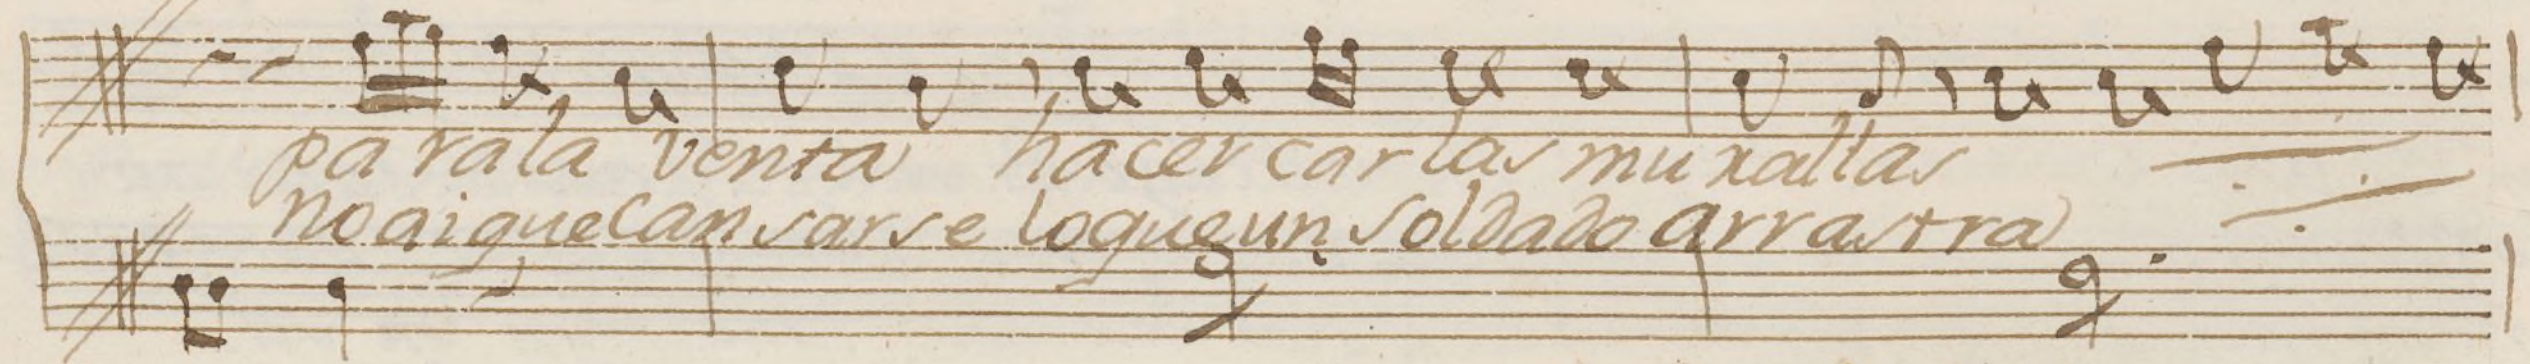 para la venta hacer car las muxallas
no ai que cansarse lo que un soldado arrastra